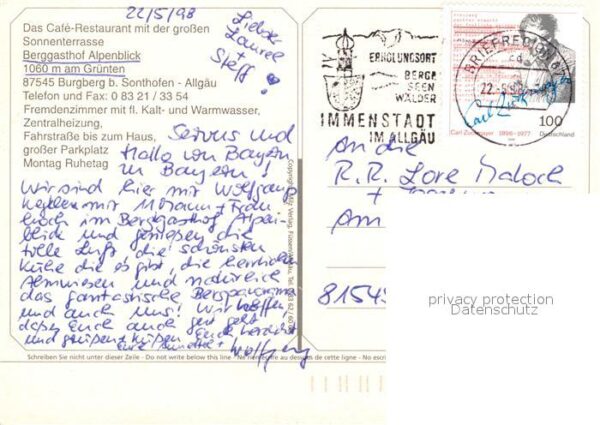 22/5/98
Das Café-Restaurant mit der großen
Sonnenterrasse
Berggasthof Alpenblick
1060 m am Grünten
87545 Burgberg b. Sonthofen - Allgäu
Telefon und Fax: 0 83 21 / 33 54
Fremdenzimmer mit fl. Kalt- und Warmwasser,
Zentralheizung.
Fahrstraße bis zum Haus,
großer Parkplatz
Montag Ruhetag
Steff!
Servus und
Hallo von Bayern
in Bayern!
Wir sind hier mit Wolfgang
hoch im Berggasthof Alpen-
blick und genießen die
tolle Luft, die schönsten
Kühe die es gibt, die herrlichen
Almwiesen und natürlich
das fantastische Bergpanorama
und auch uns! Wir hoffen,
daß es Euch auch gut geht
und grüßen + küssen Euch herzlichst
Eure + Wolfgang
Schreiben Sie nicht unter dieser Zeile - Do not write below this line - N'ecrivez pas au dessous de cette ligne - No escri
ERHOLUNGSORT
BERGE
SEEN
WÄLDER
IMMENSTADT
IM ALLGÄU
BRIEFREGION
22.-5.98
Carl Zuckmayer
Carl Zuckmayer 1896-1977
100
Deutschland
An die
R.R. Lore
Am
81545
privacy protection
Datenschutz